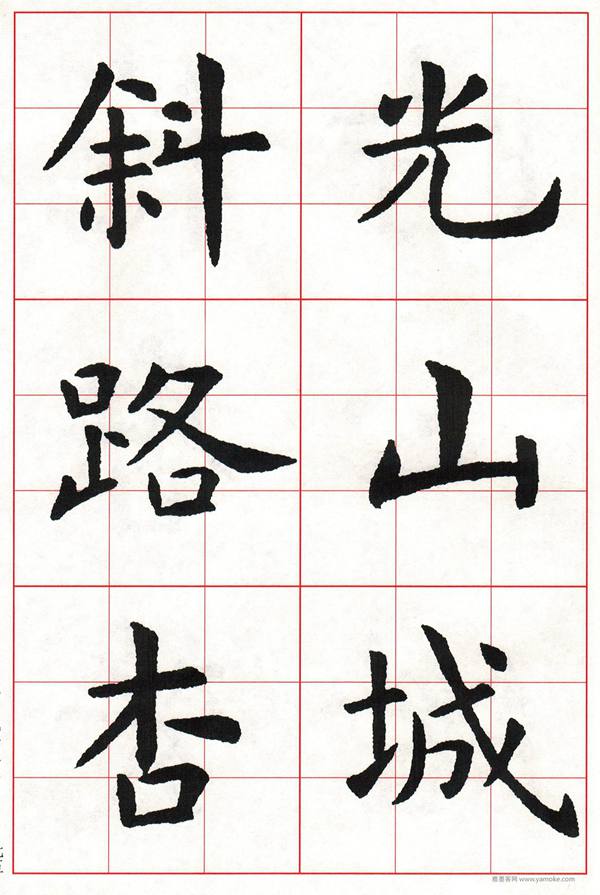 光山城
斜路杳
雅墨客网 www.yamoke.com